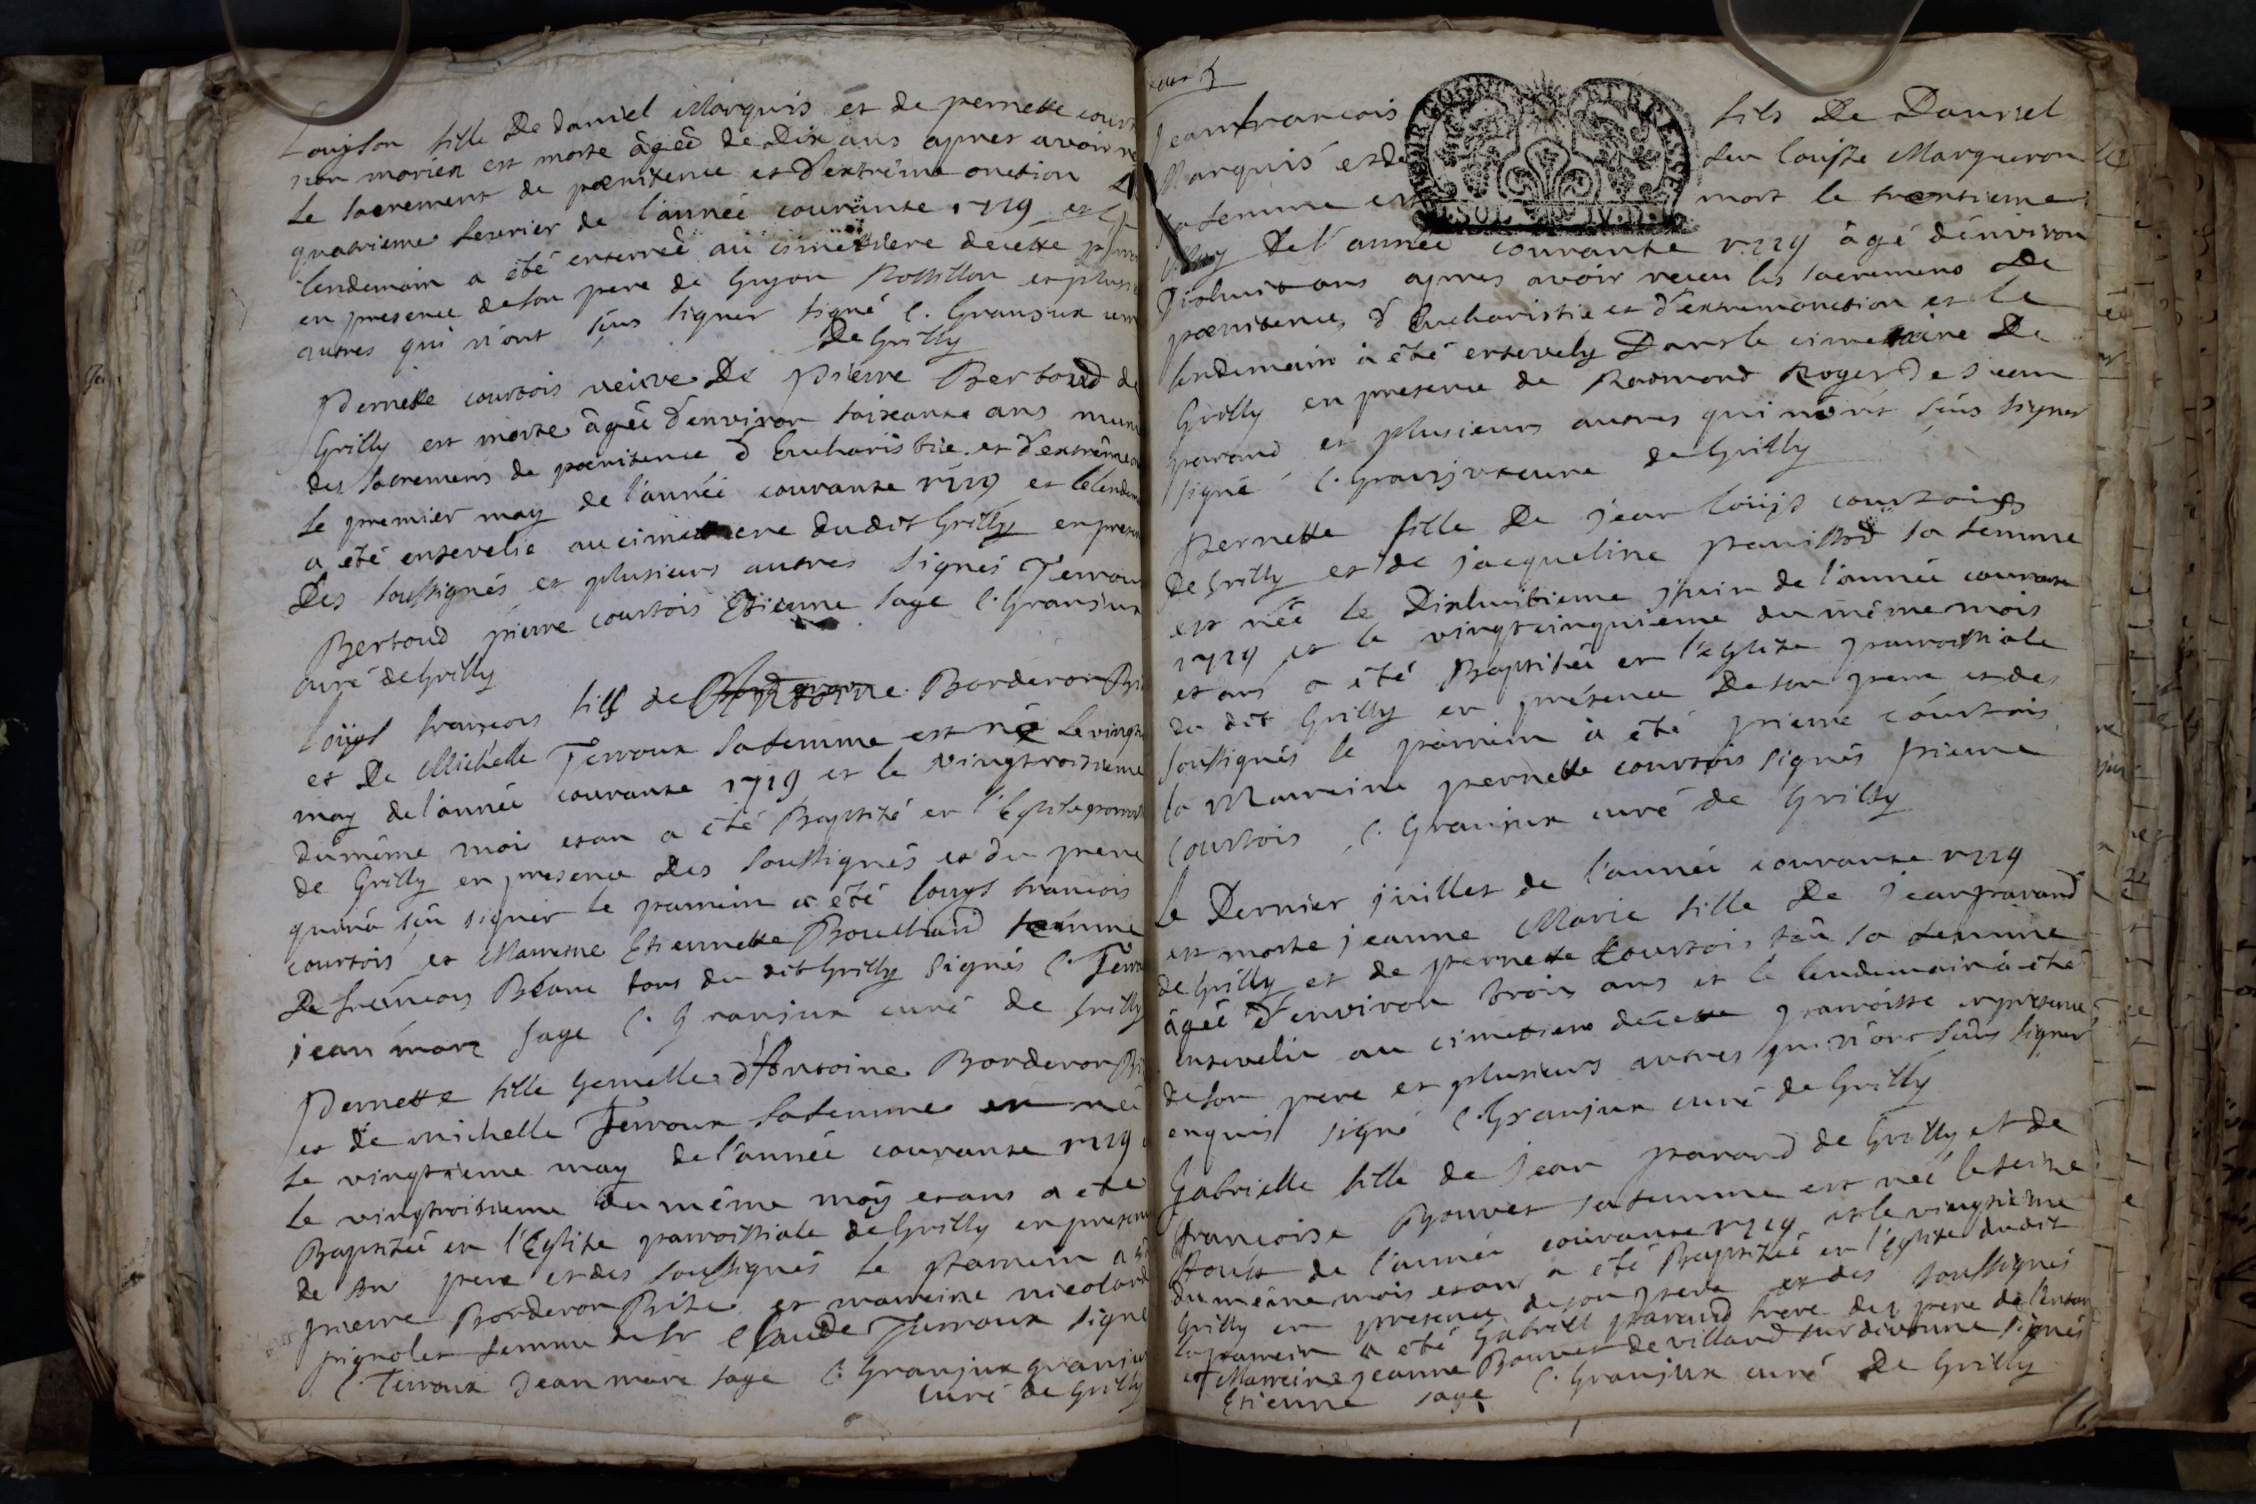 Louyson fille De daniel Marquis et de pernette
non mariez est morte âgée de Dix ans apres avoir
le sacrement de pœnitence et d'extrême onction
quatrieme fevrier de l'année courante 1719 et
lendemain a été enterrée au cimettiere decette
en presence deson pere de Guyon Rossillon et
autres qui n'ont sçus signer signé C. Granjux
De Grilly
Pernette courtois veuve De Pierre Bertoud de
Grilly est morte âgée d'environ soixante ans
des sacremens de pœnitence d'Eucharistie et d'extrême
le premier may de l'année courante 1719 et
a été ensevelie au cimettiere dudit Grilly
Des soussignés et plusieurs autres signés Terroux
Bertoud pierre courtois Etienne sage C. Granjux
curé de Grilly
Louys françois fils de Borderon
et De Michelle Terroux safemme est né
may de l'année courante 1719 et le vingtroisieme
dumême mois etan a été Baptisé en l'Eglise
de Grilly en presence des soussignés et du pere
quina sçu signer le parrein a été louys francois
courtois et Marreine Etiennette Bouchard femme
De francois Blanc tous du dit Grilly signés C. Terroux
jean marc sage C. Granjux curé de Grilly
Pernette fille Gemelle d'Antoine Borderon
et de michelle Terroux safemme est née
le vingtieme may de l'année courante 1719
le vingtroisieme du même moy etans a été
Baptizée en l'Eglise parroissiale de Grilly
de son pere et des soussignés le parrein a
pierre Borderon Brise et marreine
pignolet femme de Sr Claude Terroux signé
C. Terroux Jean marc sage C. Granjux
curé de Grilly
Jeanfrancois fils De Danniel
Marquis et de feu louise Marqueron
sa femme est mort le trentieme
May De l'année courante 1719 âgé d'environ
Dixhuit ans apres avoir receu les sacremens De
pœnitence, d'Eucharistie et d'extremonction et le
lendemain a été ensevely Dansle cimettiere De
Grilly en presence de Radmond Roger De Jean
paravd et plusieurs autres qui n'ont sçus signer
signé C. Granjux cure de Grilly
Pernette fille De jean louys courtois
De Grilly et de jacqueline panissod sa femme
est née le Dixhuitieme juin de l'année courante
1719 et le vingtcinquieme du même mois
et an a été Baptisée en l'Eglise parroissiale
du dit Grilly en présence De son pere et des
soussignés le parrein a été pierre courtois
la Marreine pernette courtois signés pierre
courtois C. Granjux curé de Grilly
Le Dernier juillet de l'année courante 1719
est morte jeanne Marie fille De jean paravd
de Grilly et de pernette Courtois sa femme
âgée d'environ trois ans et le lendemain a été
ensevelie au cimetiere decette parroisse enpresence
deson pere et plusieurs autres qui n'ont sçus signer
enquis signé C. Granjux curé de Grilly
Gabrielle fille de Jean paravd de Grilly et de
francoise Bouvet safemme est née le seize
Aoust de l'année courante 1719 et le vingtieme
dumême mois etan a été Baptizée en l'Eglise dudit
Grilly en presence deson pere et des soussignés
le parrein a été Gabriel paravd frere du pere de l'enfan
et Marreine jeanne Bouvet de villard sur divonne signés
Etienne sage C. Granjux curé De Grilly